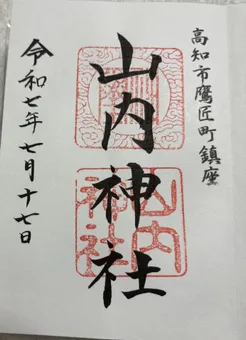 高知市鷹匠町鎮座
山内神社
山内
神社
令和七年七月十七日